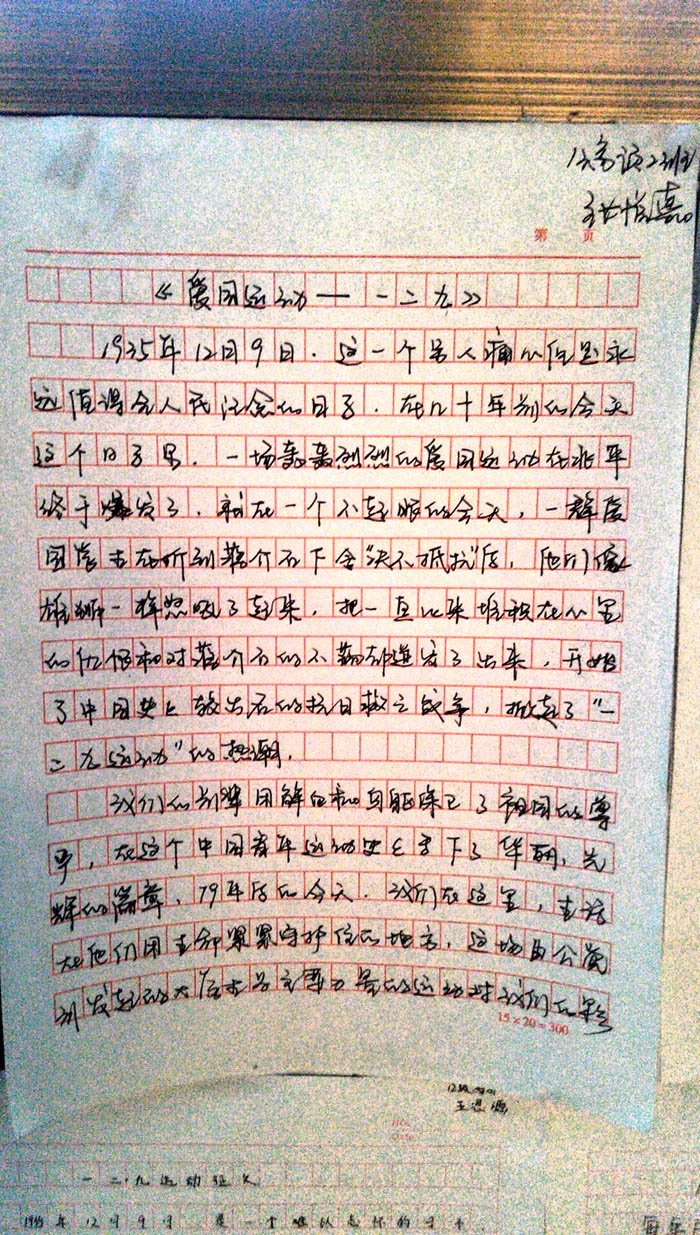 第 页
《爱国运动——一二九》
1935年12月9日.这一个另人痛心但是永
远值得全人民记念的日子.在几十年前的今天
这个日子里.一场轰轰烈烈的爱国运动在北平
终于爆发了.就在一个不起眼的今天,一群爱
国学生在听到蒋介石下令"决不抵抗"后,他们像
雄狮一样怒吼了起来,把一直以来堆积在心里
的仇恨和对蒋介石的不满都迸发了出来,开始
了中国史上较出名的抗日救亡战争,掀起了"一
二九运动"的热潮.
我们的前辈用鲜血和身躯保卫了祖国的尊
严,在这个中国青年运动史上写下了华丽、光
辉的篇章、79年后的今天.我们在这里,生活
在他们用生命紧紧守护住的地方,这场由
发起的 主要力量的运动对我们的
15×20=300
王思源
一二·九运动征文
1935年12月9日 是一个难以忘怀的日子